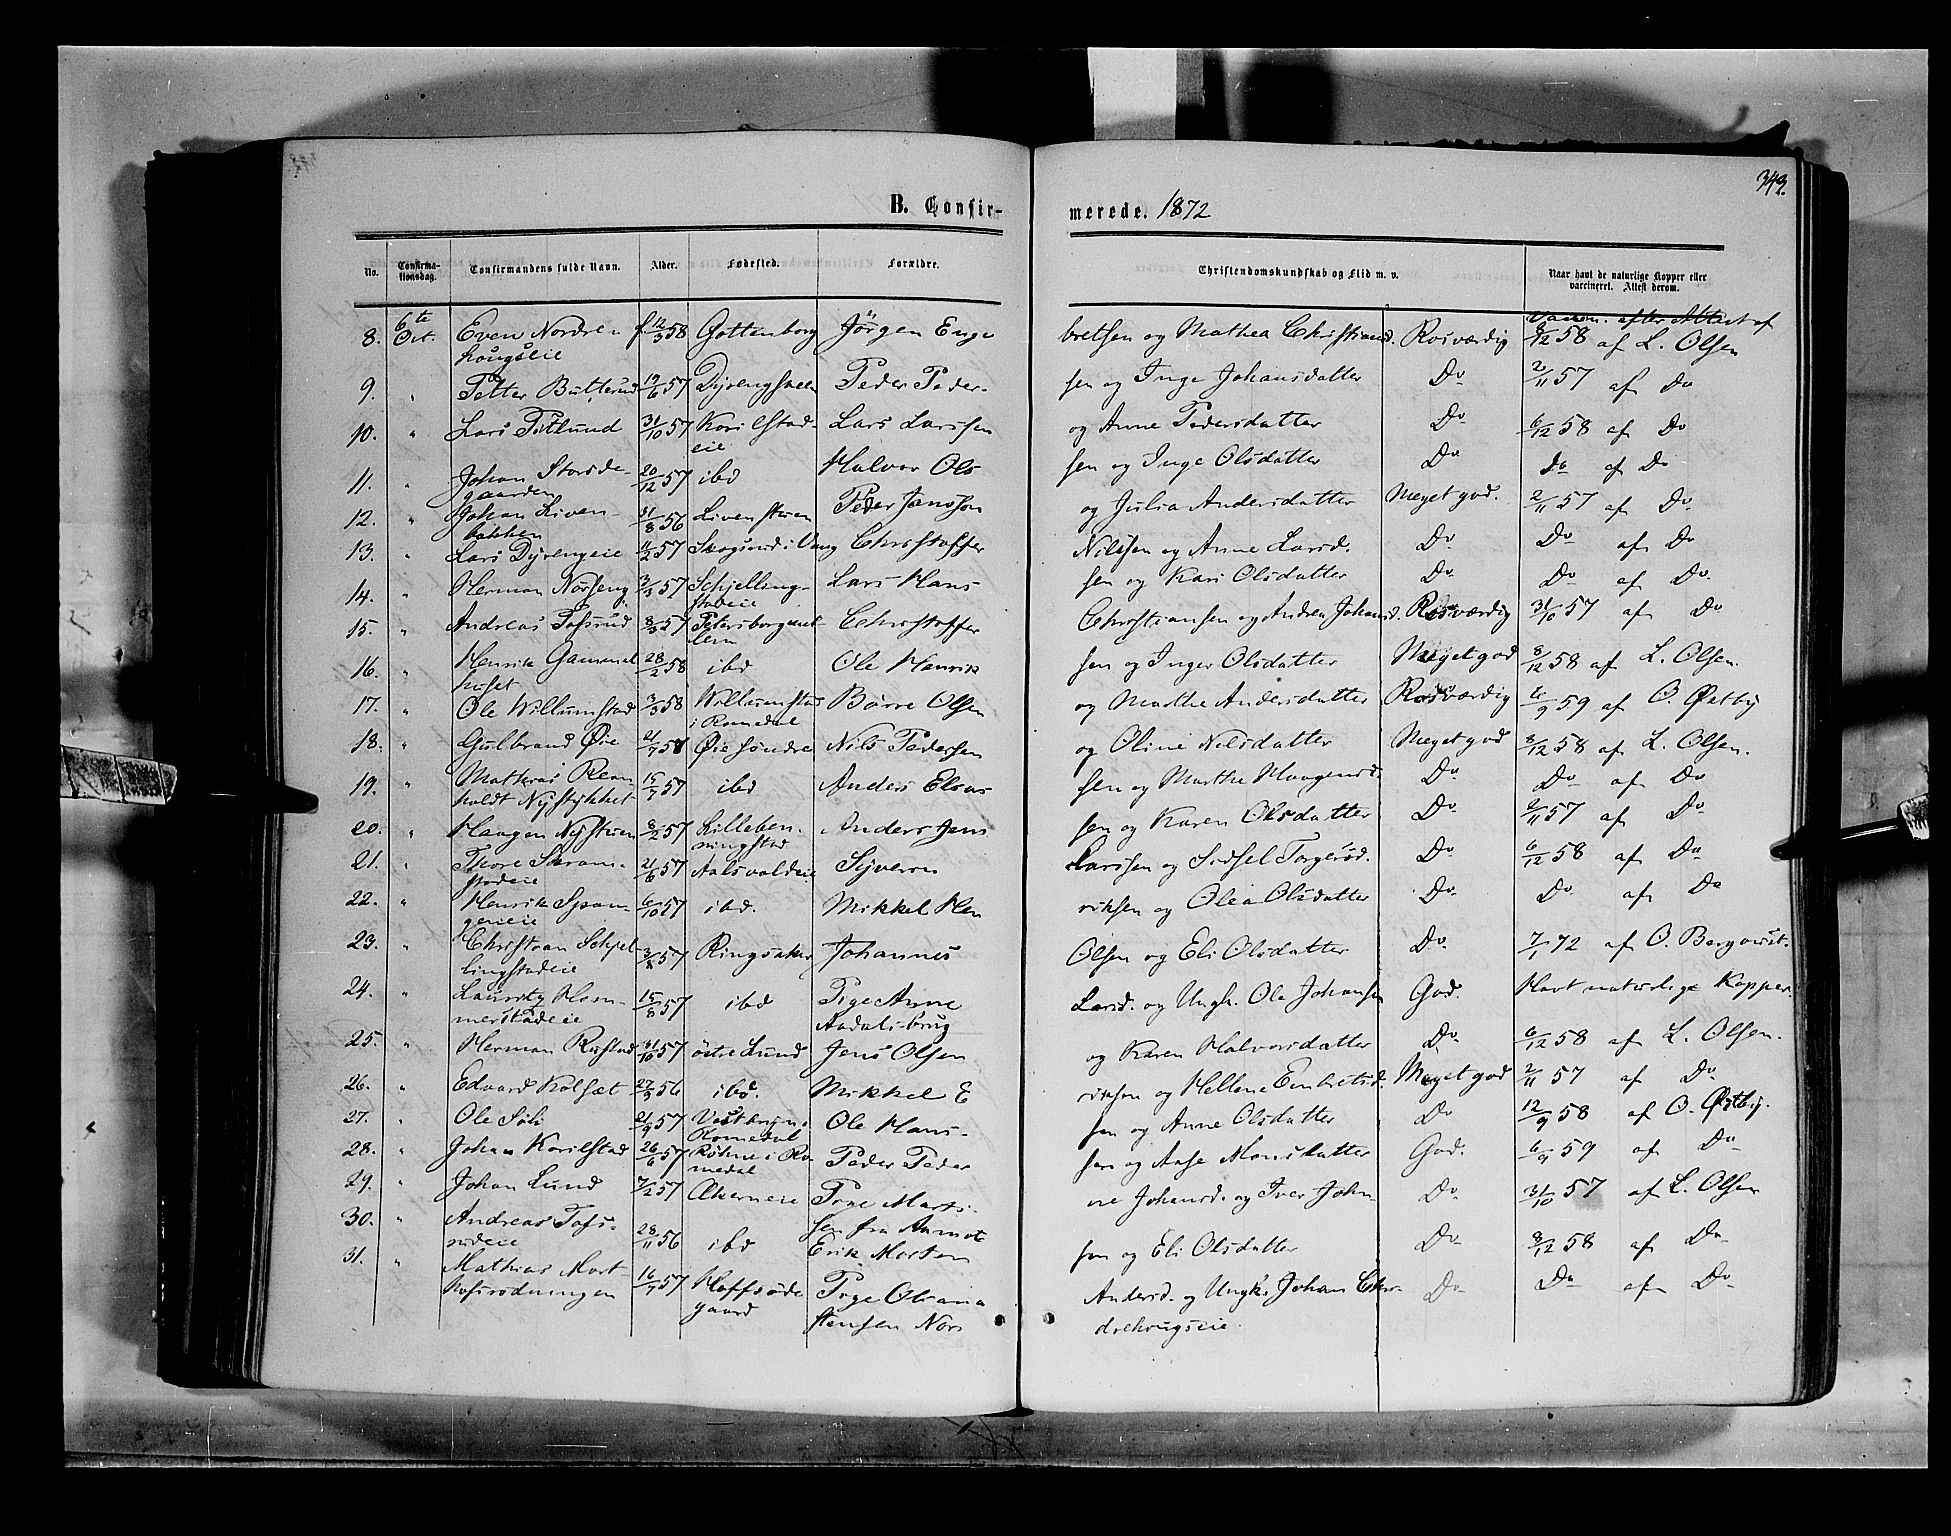 343.
B. Confir-
merede. 1872
No.
Confirma-
tionsdag.
Confirmandens fulde Navn.
Alder.
Fødested.
Forældre.
Christendomskundskab og Flid m. v.
Naar havt de naturlige Kopper eller
vaccineret. Attest derom.
Vaccin. efter Attest af
8. 6te Oct. Even Nordre- f. 12/3 58 Gottenborg Jörgen Enge bretsen og Mathea Christiansd. Rosværdig 8/12 58 af L. Olsen
hougseie
9. " Petter Butterud 19/6 57 Dyrengsveen Peder Peder- sen og Inge Johansdatter Do 2/11 57 af Do
10. " Lars Titlund 31/10 57 Korilstad- Lars Larssen og Anne Pedersdatter Do 6/12 58 af Do
eie
11. " Johan Storsde- 20/12 57 ibd Halvor Ols sen og Inge Olsdatter Do Do af Do
gaarden
12. " Johan Liven- 31/8 56 Livenstuen Peder Jansson og Julia Andersdatter Meget god. 2/11 57 af Do
bakken
13. " Lars Dyrengeie 11/2 57 Skogsrud i Vang Christoffer Nilssen og Anne Larsd. Do Do af Do
14. " Herman Norseng 3/3 57 Schjelling- Lars Hans sen og Kari Olsdatter Do Do af Do
stadeie
15. " Andreas Tofsrud 8/3 57 Christoffer Christiansen og Andrea Johansd. Rosværdig 31/10 57 af Do
16. " Henrik Gammel 28/2 58 ibd Ole Henrik sen og Inger Olsdatter Meget god 8/12 58 af L. Olsen.
huset
17. " Ole Willumstad 3/3 58 Willumstad Börre Olsen og Marthe Andersdatter Rosværdig 6/9 59 af O. Østby
i Romedal
18. " Gulbrand Øie 21/7 57 Øie søndre Nils Pedersen og Oline Nilsdatter Meget god 8/12 58 af L. Olsen.
19. " Mathias Rein 15/7 57 ibd Anders Elias sen og Marthe Haagensd. Do Do af Do
holdt Nystykket
20. " Haagen Nystuen 8/2 57 Lilleben- Anders Jens sen og Karen Olsdatter Do 2/11 57 af Do
ningstad
21. " Thore Skram- 21/6 57 Aalsvoldeie Syvern Larssen og Sidsel Torgersd. Do 6/12 58 af Do
stadeie
22. " Henrik Span- 6/10 57 ibd. Mikkel Hen riksen og Olea Olsdatter Do Do af Do
geneie
23. " Christian Schjel- 3/8 57 Ringsaker Johannes Olsen og Eli Olsdatter Do 7/1 72 af O. Bergqvist.
lingstadeie
24. " Lauritz Hom- 15/8 57 ibd Pige Anne Larsd. og Ungk. Ole Johansen God. Havt naturlige Kopper.
merstadeie Aadalsbrug
25. " Herman Rustad 31/10 57 östre Lund Jens Olsen og Karen Halvorsdatter Do 6/12 58 af L. Olsen.
26. " Edvard Kolsæt 27/3 56 ibd. Mikkel E riksen og Hellene Embretsd. Meget god 2/11 57 af Do
27. " Ole Sili 21/9 57 Ole Hans- sen og Anne Olsdatter Do 12/9 58 af O. Østby.
Romedal
28. " Johan Korilstad 26/6 57 Røhne i Ro Peder Peder sen og Aase Monsdatter God. 6/9 59 af Do
medal
29. " Johan Lund 7/2 57 Akerneie Pige Marti- ne Johansd. og Iver John- Do 31/10 57 af L. Olsen
sen fra Aamot
30. " Andreas Tofs- 28/11 56 ibd Erik Morten sen og Eli Olsdatter Do 8/12 58 af Do
rudeie
31. " Mathias Mort- 16/7 57 Hoffsøde Pige Oliana Andersd. og Ungk. Johan Chri- Do Do af Do
gaard stensen Nor drehougseie.